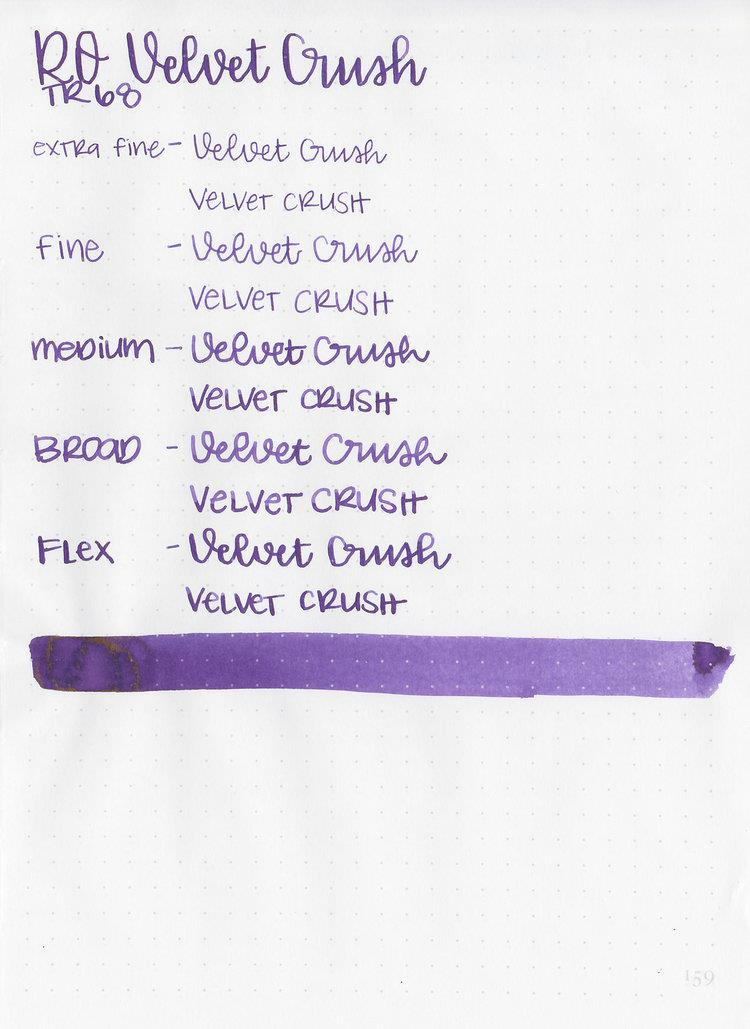 RO Velvet Crush
TR68
extra fine - Velvet Crush
VELVET CRUSH
fine - Velvet Crush
VELVET CRUSH
medium - Velvet Crush
VELVET CRUSH
BROAD - Velvet Crush
VELVET CRUSH
FLEX - Velvet Crush
VELVET CRUSH
159